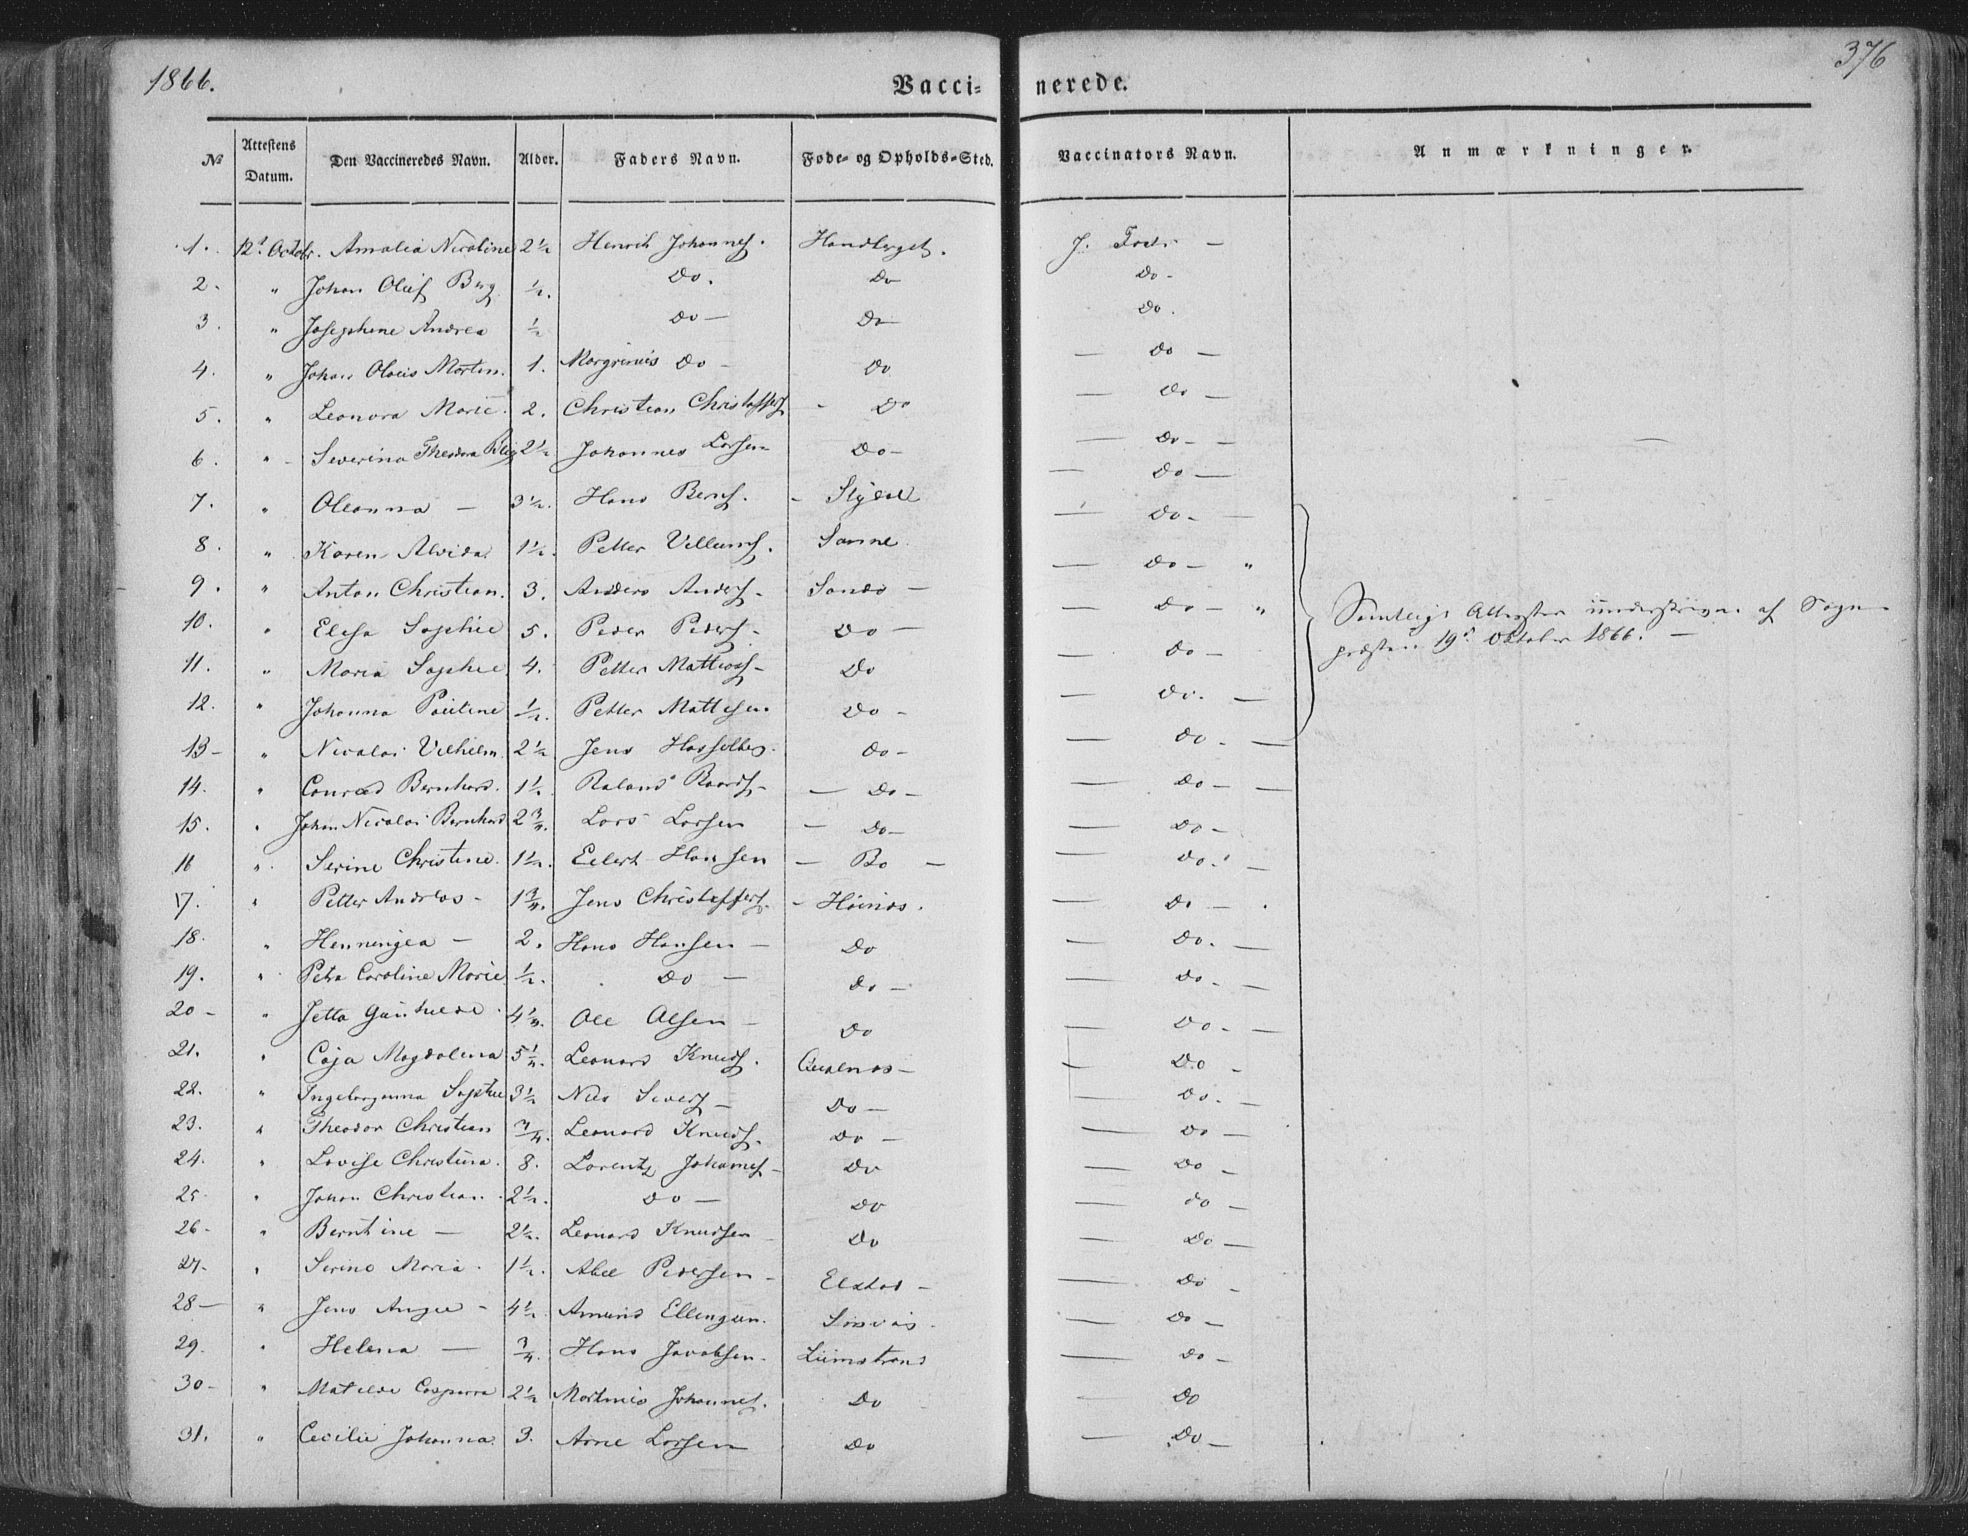 1866.
Vacci- nerede.
376
No Attestens Datum. Den Vaccineredes Navn. Alder. Faders Navn. Føde- og Opholds-Sted. Vaccinators Navn. Anmærkninger.
1. 12t Octobr. Amalia Nicoline 2½ Henrik Johannes. J.
2. " Johan Oluf Berg ½. Do. Do Do.
3. " Josephine Andrea ½ Do Do Do.
4. " Johan Olaus Morten. 1. Do Do Do
5. " Leonora Marie. 2. Christian Christoffers Do Do
6. " Severina Theodora 2½ Johannes Larsen Do Do
7. " Oleanna 3½. Hans Bernts. Do
8. " Karen Alvida. 1½. Petter Villums. Sanne Do
9. " Anton Christian. 3. Anders Anders. Sando Do "
10. " Elisa Sophie 5. Peder Peders. Do Do "
11. " Maria Sophie 4. Petter Mattiass Do Do
12. " Johanna Pauline ½. Petter Mattisen Do Do.
13 " Nicolai Vilhelm 2½ Jens Hasselberg. Do Do.
14. " Conrad Bernhard. 1½ Roland Do Do
15. " Johan Nicolai Bernhard 2¾. Lars Larsen Do Do
16 " Serine Christine. 1½. Eilert Hansen Bo Do.
17. " Petter Andreas 1¾. Jens Christoffers. Høines. Do
18. " Henningea 2. Hans Hansen Do Do.
19. " Petra Caroline Marie ½. Do Do Do.
20 " Jetta Gunhilde. 4¼. Ole Olsen Do Do.
21. " Caja Magdalena 5¼. Leonard Knuds. Qualnes Do
22. " Ingeborganna Sophie 3½ Nils Sivers Do Do.
23. " Theodor Christian ¾. Leonard Knuds. Do Do
24. " Lovise Christina. 8. Lorentz Johannes Do Do
25 " Johan Christian. 2½. Do Do Do
26 " Berntine 2½. Leonard Knudsen Do Do
27. " Serine Maria. 1½. Abel Pedersen Elstad Do
28 " Jens Angel 4½. Amund Ellingsen. Sørvas. Do
29. " Helena ¾. Hans Jacobsen. Limstrand Do
30 " Matilde Casparra 2½ Martines Johannes. Do Do
31. " Cecilie Johanna. 3. Arne Larsen Do Do
Samtlige Attester underskrivne af Sogne
præsten 19d Oktober 1866.